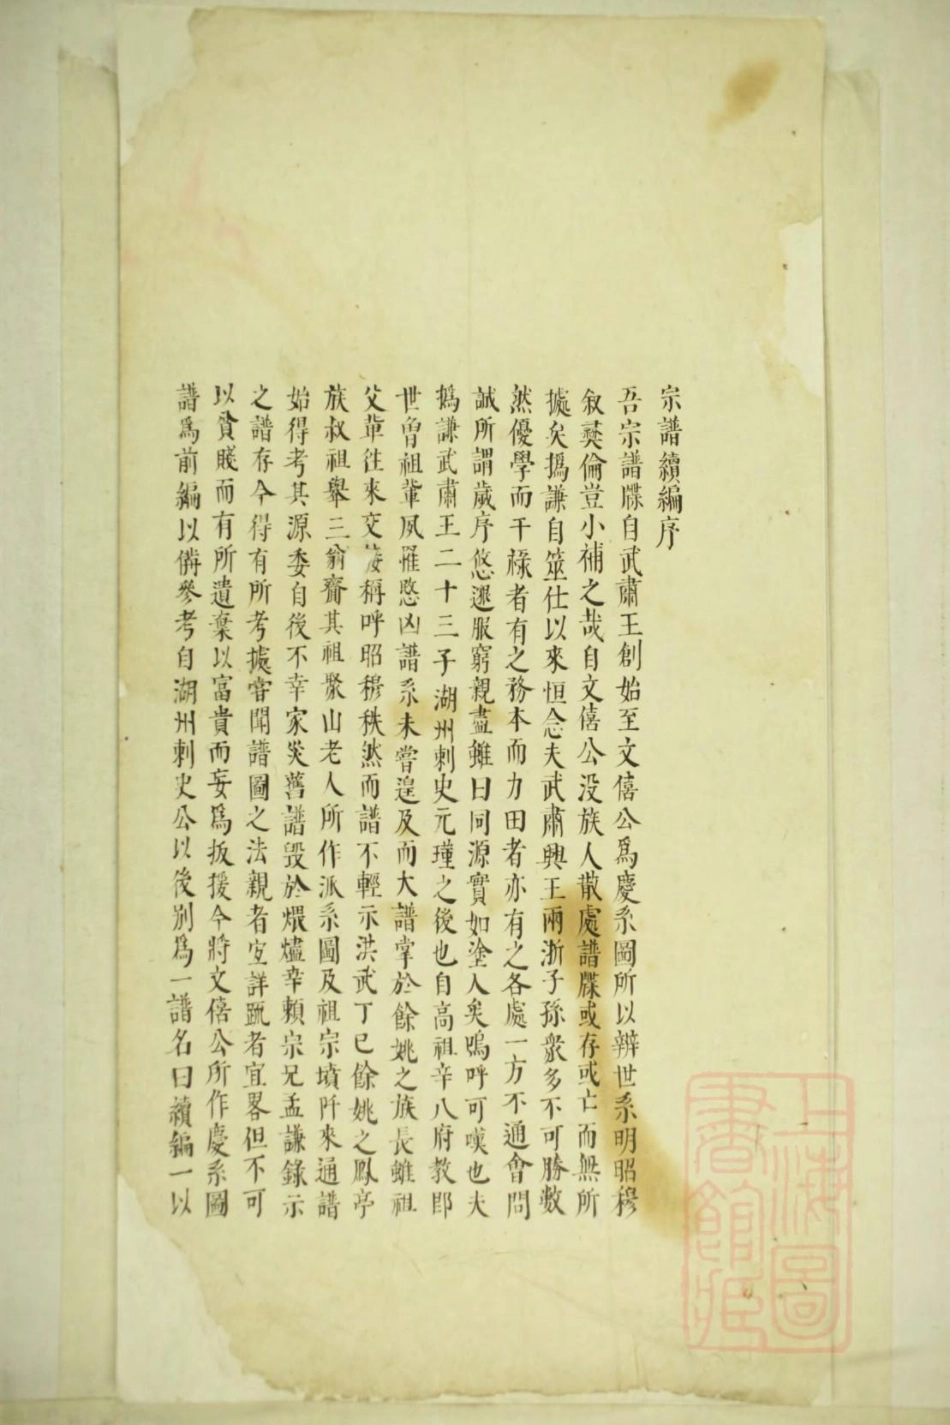 宗譜續編序
吾宗譜牒自武肅王創始至文僖公爲慶系圖所以辨世系明昭穆
叙彜倫豈小補之哉自文僖公没族人散處譜牒或存或亡而無所
據矣撝謙自筮仕以來恒念夫武肅興王兩浙子孫衆多不可勝數
然優學而干祿者有之務本而力田者亦有之各處一方不通會問
誠所謂歲序悠邈服窮親盡雖曰同源實如塗人矣嗚呼可嘆也夫
撝謙武肅王二十三子湖州刺史元瓘之後也自高祖辛八府教郎
世曾祖輩夙罹愍凶譜系未嘗遑及而大譜掌於餘姚之族長雖祖
父輩往來交接稱呼昭穆秩然而譜不輕示洪武丁巳餘姚之鳳亭
族叔祖舉三翁齎其祖聚山老人所作派系圖及祖宗墳阡來通譜
始得考其源委自後不幸家災舊譜毀於煨燼幸賴宗兄孟謙錄示
之譜存今得有所考據嘗聞譜圖之法親者宜詳疏者宜畧但不可
以貧賤而有所遺棄以富貴而妄爲扳援今將文僖公所作慶系圖
譜爲前編以備參考自湖州刺史公以後別爲一譜名曰續編一以
上海圖書館藏